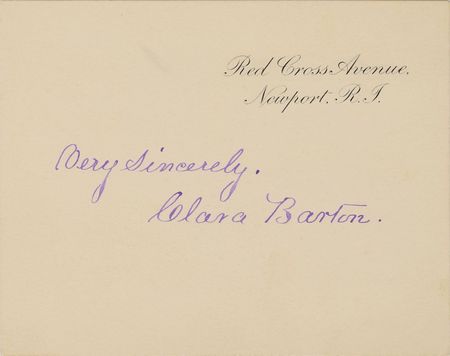 Red Cross Avenue.
Newport, R. I.
Very Sincerely.
Clara Barton.